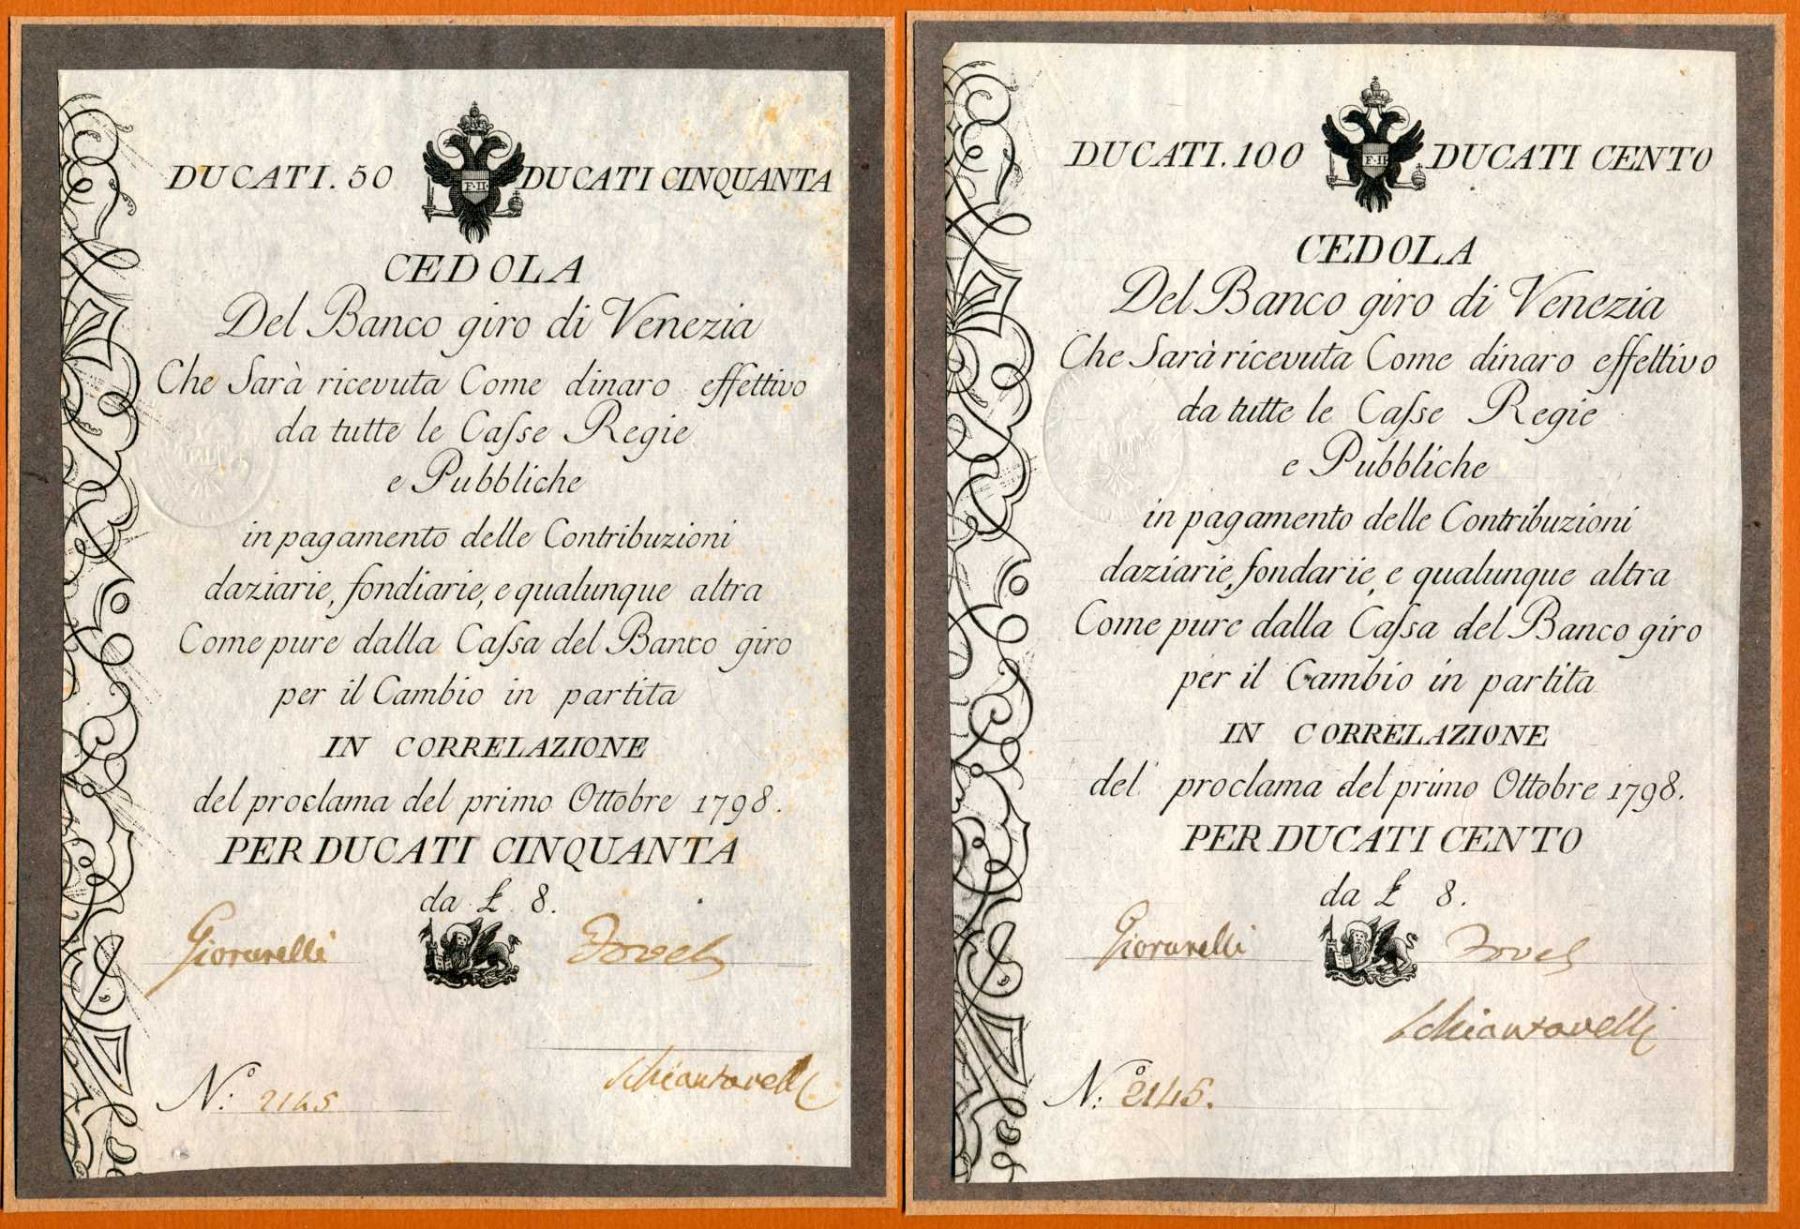 DUCATI. 50 F·II DUCATI CINQUANTA
CEDOLA
Del Banco giro di Venezia
Che Sarà ricevuta Come dinaro effettivo
da tutte le Caſse Regie
e Pubbliche
in pagamento delle Contribuzioni
daziarie, fondiarie, e qualunque altra
Come pure dalla Caſsa del Banco giro
per il Cambio in partita
IN CORRELAZIONE
del proclama del primo Ottobre 1798.
PER DUCATI CINQUANTA
da £ 8.
N:° 2145
DUCATI. 100 F·II DUCATI CENTO
CEDOLA
Del Banco giro di Venezia
Che Sarà ricevuta Come dinaro effettivo
da tutte le Caſse Regie
e Pubbliche
in pagamento delle Contribuzioni
daziarie, fondarie, e qualunque altra
Come pure dalla Caſsa del Banco giro
per il Cambio in partita
IN CORRELAZIONE
del proclama del primo Ottobre 1798.
PER DUCATI CENTO
da £ 8.
N:° 2145.